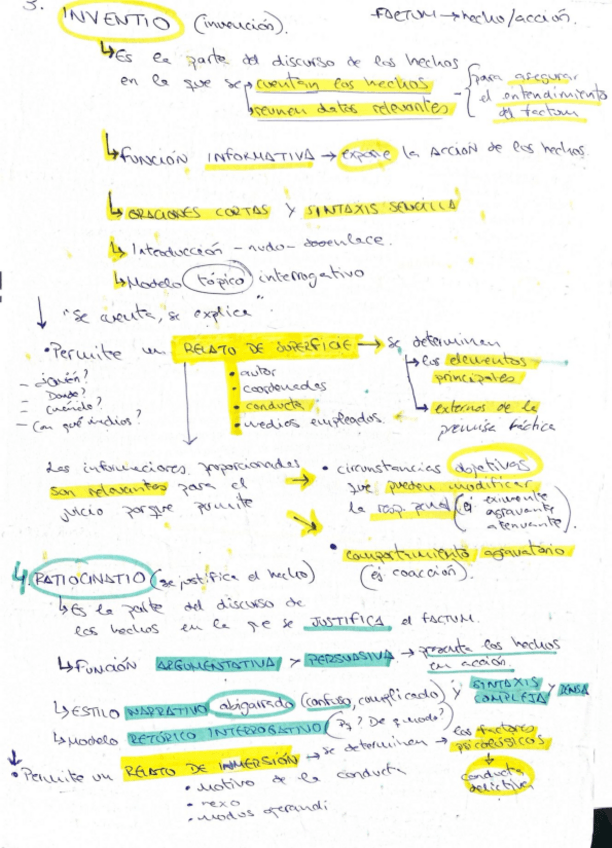 3.
INVENTIO (invención).
FACTUM → hecho/acción.
↳ Es la parte del discurso de los hechos
en la que se → cuentan los hechos
↳ reunen datos relevantes
para asegurar
el entendimiento
del factum
↳ FUNCIÓN INFORMATIVA → expone la ACCIÓN de los hechos
↳ ORACIONES CORTAS Y SINTAXIS SENCILLA
↳ Introducción - nudo - desenlace.
↳ Modelo tópico interrogativo
↓ "Se cuenta, se explica"
• Permite un RELATO DE SUPERFICIE → Se determinan
→ los elementos
principales
→ externos de la
premisa fáctica
- ¿Quién?
- Donde?
- Cuándo?
- Con qué medios?
• autor
• coordenadas
• conducta
• medios empleados.
Las informaciones proporcionadas
son relevantes para el
juicio porque permite
→ • circunstancias objetivas
que pueden modificar
la resp. penal (ej eximente
agravante
atenuante).
• comportamiento agravatorio
(ej. coacción).
4. RATIOCINATIO (se justifica el hecho)
↳ Es la parte del discurso de
los hechos en la que se JUSTIFICA el FACTUM.
↳ FUNCIÓN ARGUMENTATIVA > PERSUASIVA → presenta los hechos
en acción.
↳ ESTILO NARRATIVO abigarrado (confuso, complicado) y SINTAXIS
COMPLEJA y DENSA
↳ Modelo RETÓRICO INTERROGATIVO (Pq? De q modo?)
• Permite un RELATO DE INMERSIÓN → se determinan → los factores
psicológicos
↓
conducta
delictiva
• motivo de la conducta
• nexo
• modus operandi